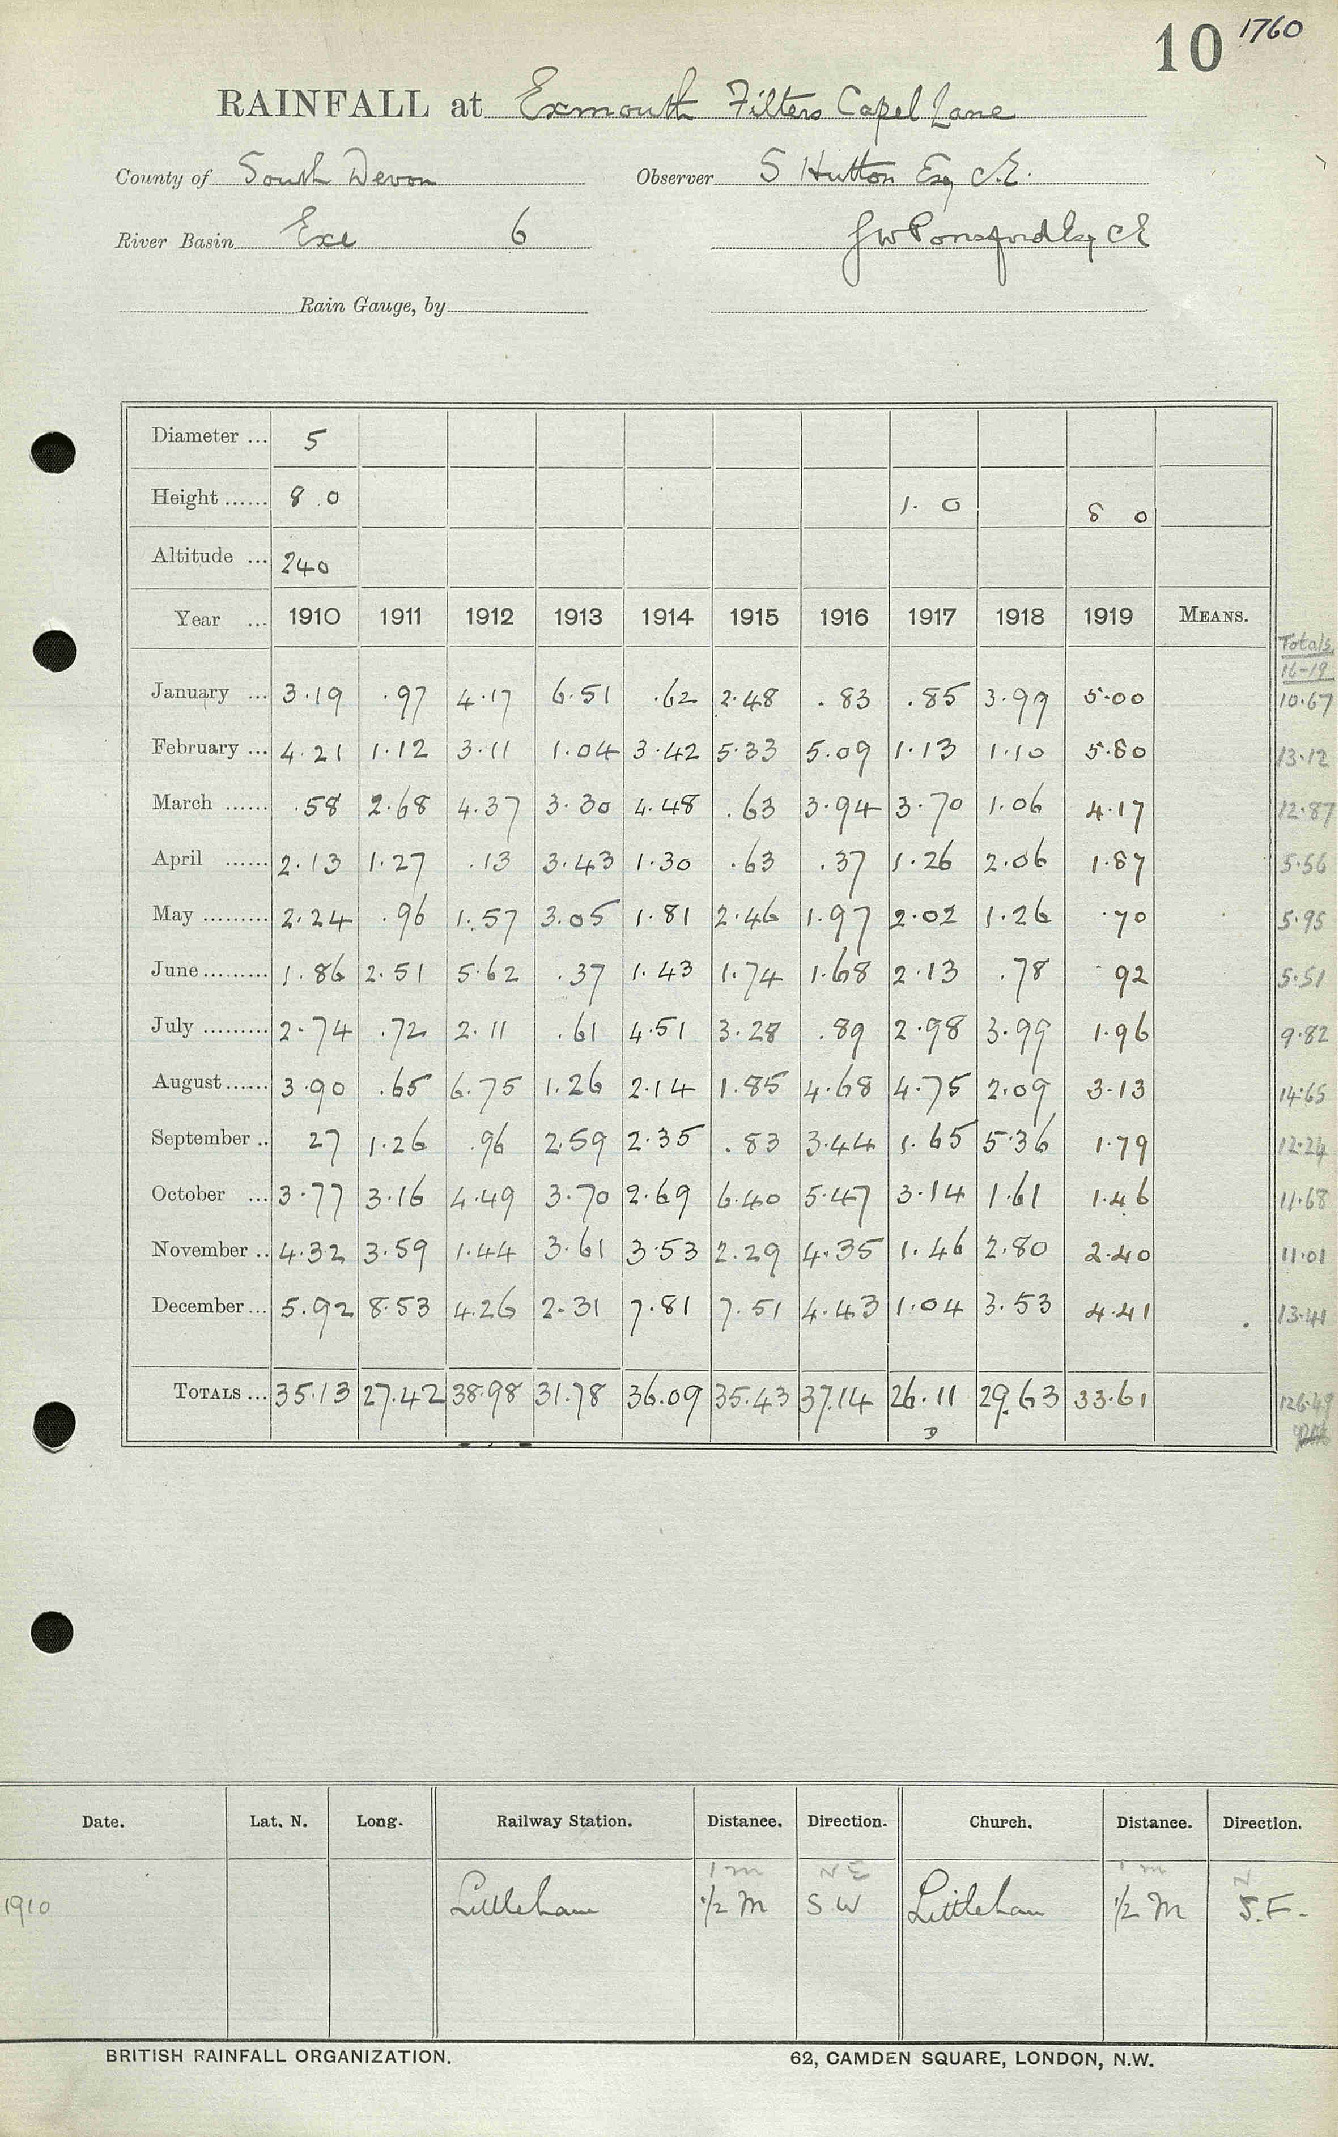 10 1760
RAINFALL at Exmouth Filters Capel Lane
County of South Devon Observer S Hutton Esq C.E.
River Basin Exe 6 J W Ponsford Esq CE
Rain Gauge, by
Diameter ... 5
Height ...... 8.0 1. 0 8 0
Altitude ... 240
Year ... 1910 1911 1912 1913 1914 1915 1916 1917 1918 1919 MEANS. Totals
16-19
January ... 3.19 .97 4.17 6.51 .62 2.48 .83 .85 3.99 5.00 10.67
February ... 4.21 1.12 3.11 1.04 3.42 5.33 5.09 1.13 1.10 5.80 13.12
March ...... .58 2.68 4.37 3.30 4.48 .63 3.94 3.70 1.06 4.17 12.87
April ...... 2.13 1.27 .13 3.43 1.30 .63 .37 1.26 2.06 1.87 5.56
May ......... 2.24 .96 1.57 3.05 1.81 2.46 1.97 2.02 1.26 .70 5.95
June ......... 1.86 2.51 5.62 .37 1.43 1.74 1.68 2.13 .78 .92 5.51
July ......... 2.74 .72 2.11 .61 4.51 3.28 .89 2.98 3.99 1.96 9.82
August ...... 3.90 .65 6.75 1.26 2.14 1.85 4.68 4.75 2.09 3.13 14.65
September .. 27 1.26 .96 2.59 2.35 .83 3.44 1.65 5.36 1.79 12.24
October ... 3.77 3.16 4.49 3.70 2.69 6.40 5.47 3.14 1.61 1.46 11.68
November .. 4.32 3.59 1.44 3.61 3.53 2.29 4.35 1.46 2.80 2.40 11.01
December ... 5.92 8.53 4.26 2.31 7.81 7.51 4.43 1.04 3.53 4.41 13.41
TOTALS ... 35.13 27.42 38.98 31.78 36.09 35.43 37.14 26.11 29.63 33.61 126.49
Date. Lat. N. Long. Railway Station. Distance. Direction. Church. Distance. Direction.
1 m N E 1 m N
1910 Littleham 1/2 M S W Littleham 1/2 M S.E.
BRITISH RAINFALL ORGANIZATION. 62, CAMDEN SQUARE, LONDON, N.W.